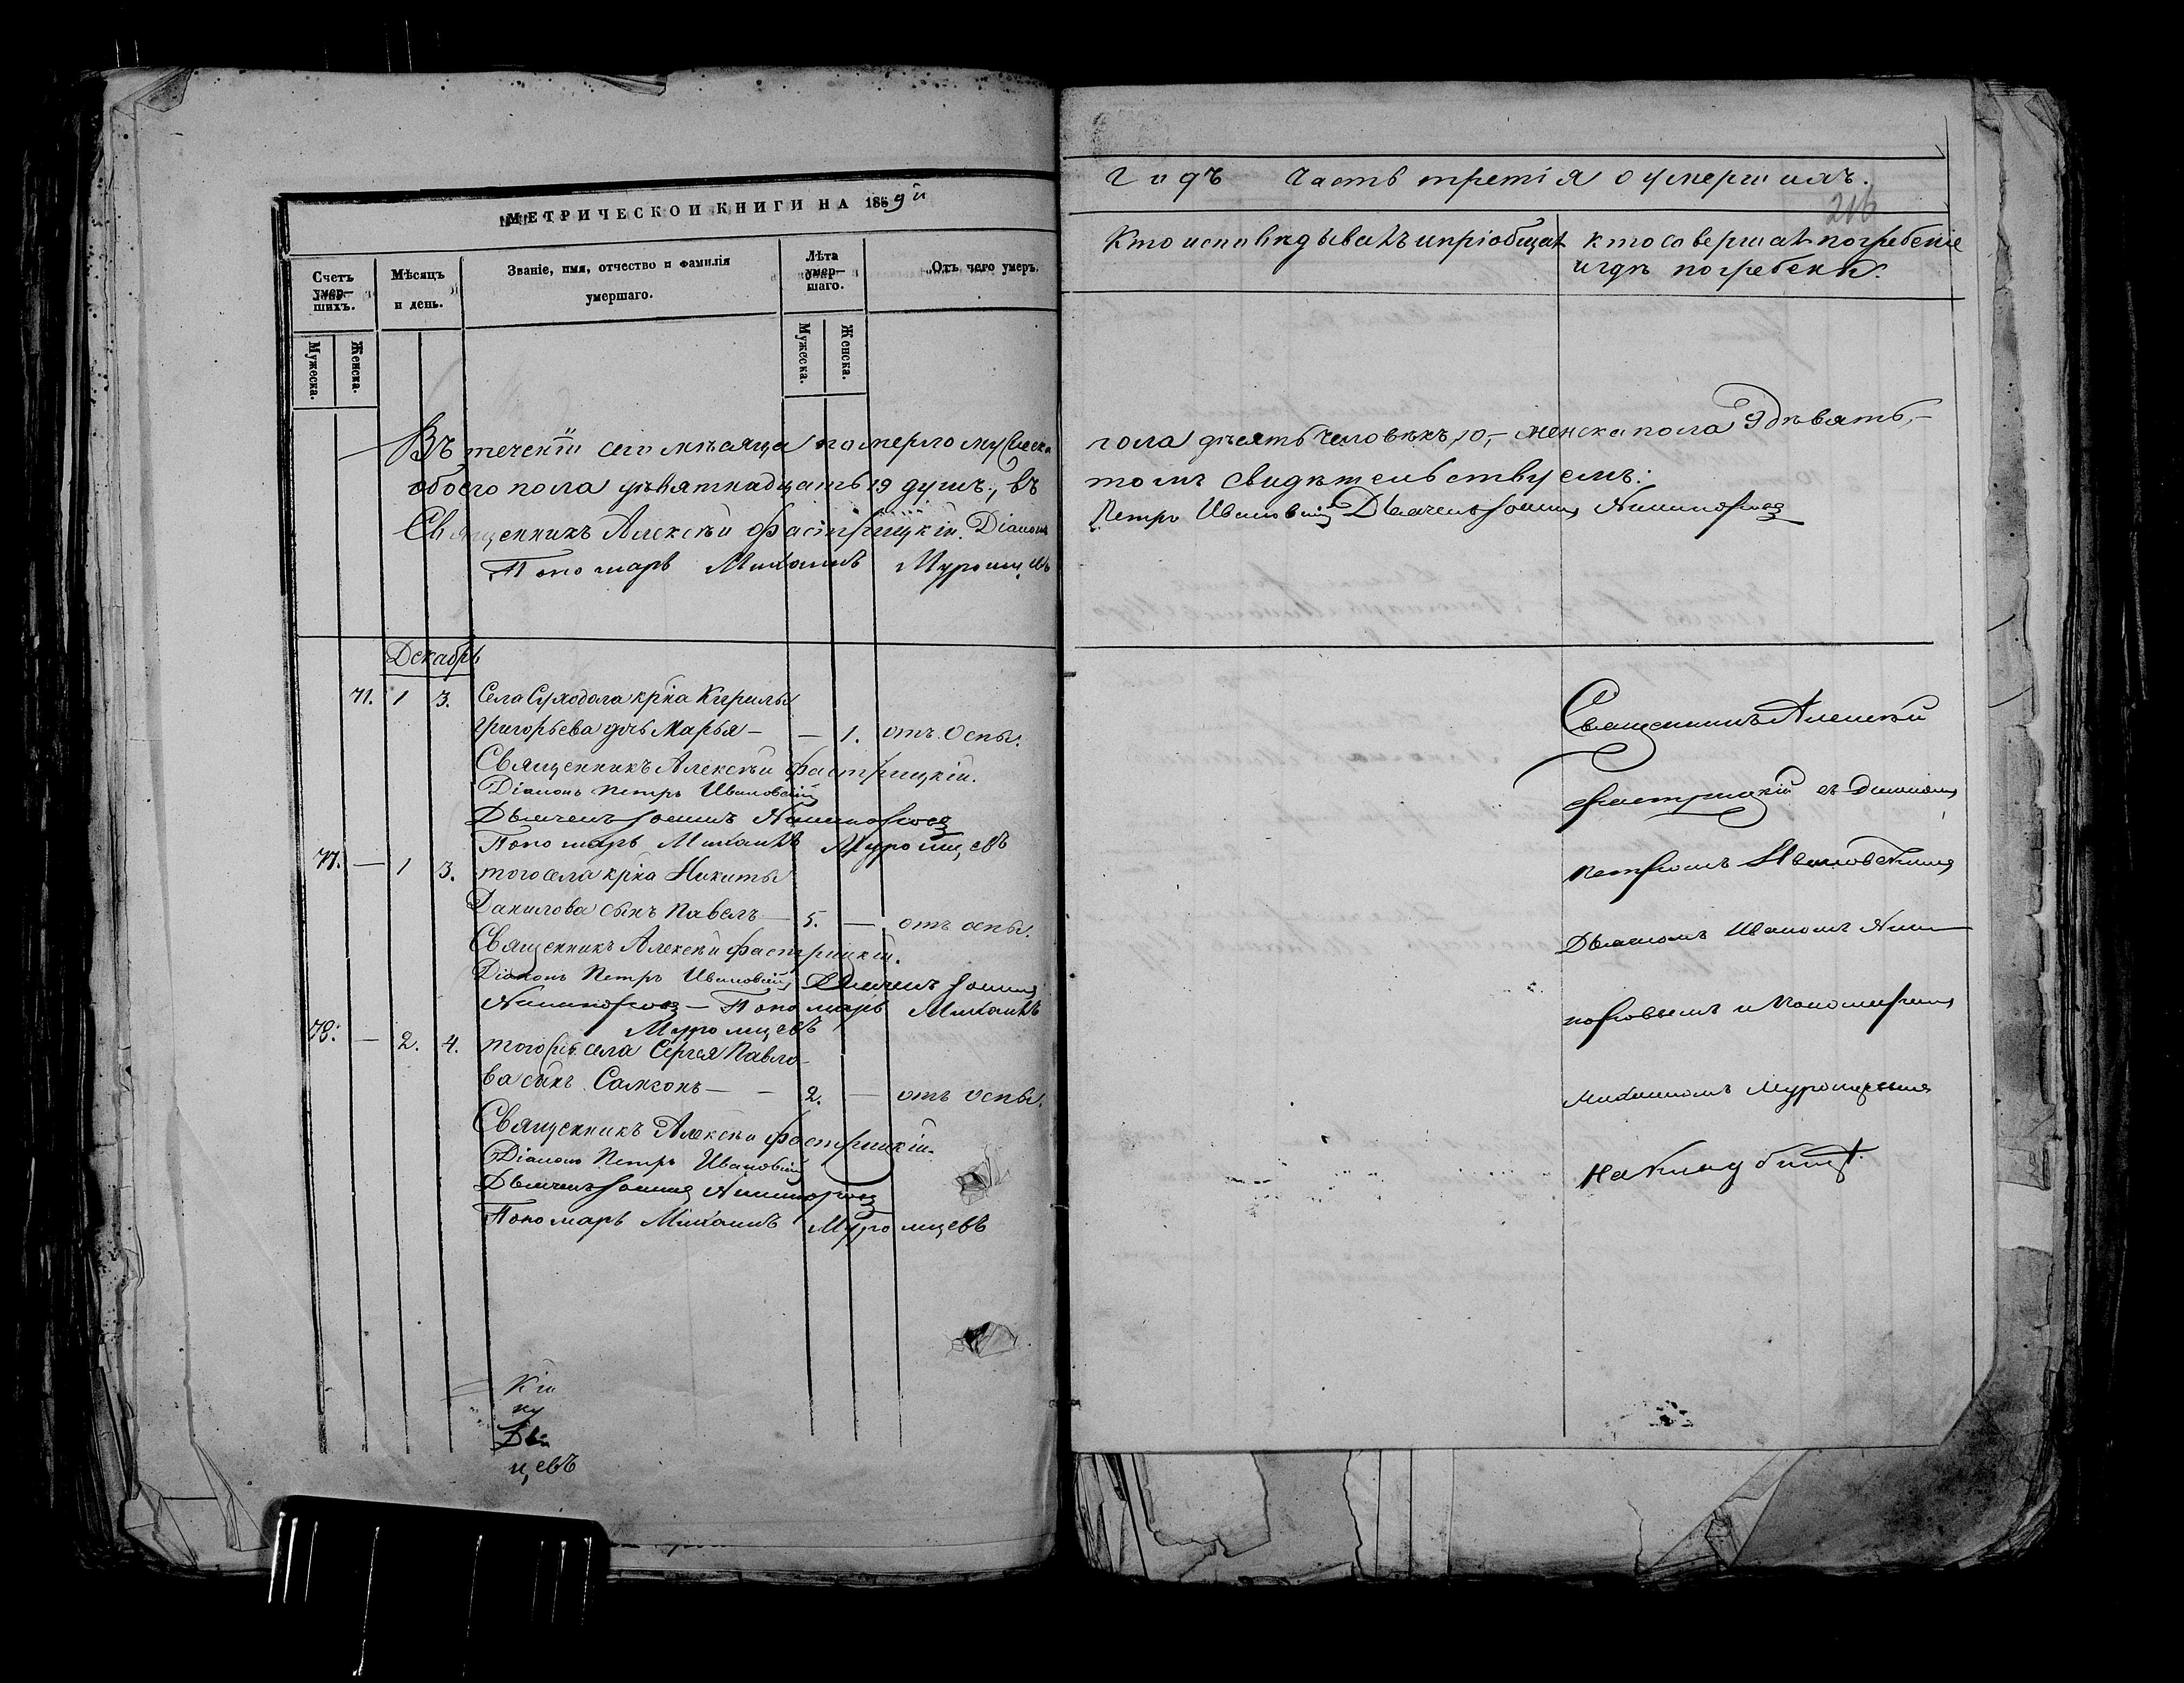 МЕТРИЧЕСКОИ КНИГИ НА 1869й
Годъ Часть третія о умершихъ.
216
Счетъ умер-
шихъ.
Мѣсяцъ
и день.
Званіе, имя, отчество и фамилія
умершаго.
Лѣта
умер-
шаго.
Отъ чего умеръ.
Кто исповѣдывалъ и пріобщалъ
кто совершалъ погребеніе
и гдѣ погребены.
Мужеска.
Женска.
Мужеска.
Женска.
Въ теченіи сего мѣсяца померло мужеска
пола десять человѣкъ 10,- женска пола 9 дѣвять,-
обоего пола дѣвятнадцать 19 душъ, въ
томъ свидѣтельствуемъ:
Священникъ Алексѣй Фастрицкій. Діаконъ
Петръ Ивановскій Дьячекъ Іоаннъ Никифоровъ
Пономарь Михаилъ Муромцевъ
Декабрь
71. 1 3. Села Суходола крна Кирилы
Григорьева дочь Марья — — 1. отъ оспы.
Священникъ Алексѣй Фастрицкій.
Діаконъ Петръ Ивановскій
Дьячекъ Іоаннъ Никифоровъ
Пономарь Михаилъ Муромцевъ
77. — 1 3. того села крна Никиты
Данилова сынъ Павелъ — 5. — отъ оспы.
Священникъ Алексѣй Фастрицкій.
Діаконъ Петръ Ивановскій Дьячекъ Іоаннъ
Никифоровъ — Пономарь Михаилъ
Муромцевъ
78. — 2. 4. того же села Сергея Павло-
ва сынъ Самсонъ — — 2. — отъ оспы.
Священникъ Алексѣй Фастрицкій.
Діаконъ Петръ Ивановскій
Дьячекъ Іоаннъ Никифоровъ
Пономарь Михаилъ Муромцевъ
Кій
ну
Дья
цевъ
Священникъ Алексѣй
Фастрицкій съ Діакономъ
Петромъ Ивановскимъ
Дьячкомъ Иваномъ Ники-
форовымъ и Пономаремъ
Михаиломъ Муромцевымъ
На кладбищѣ.